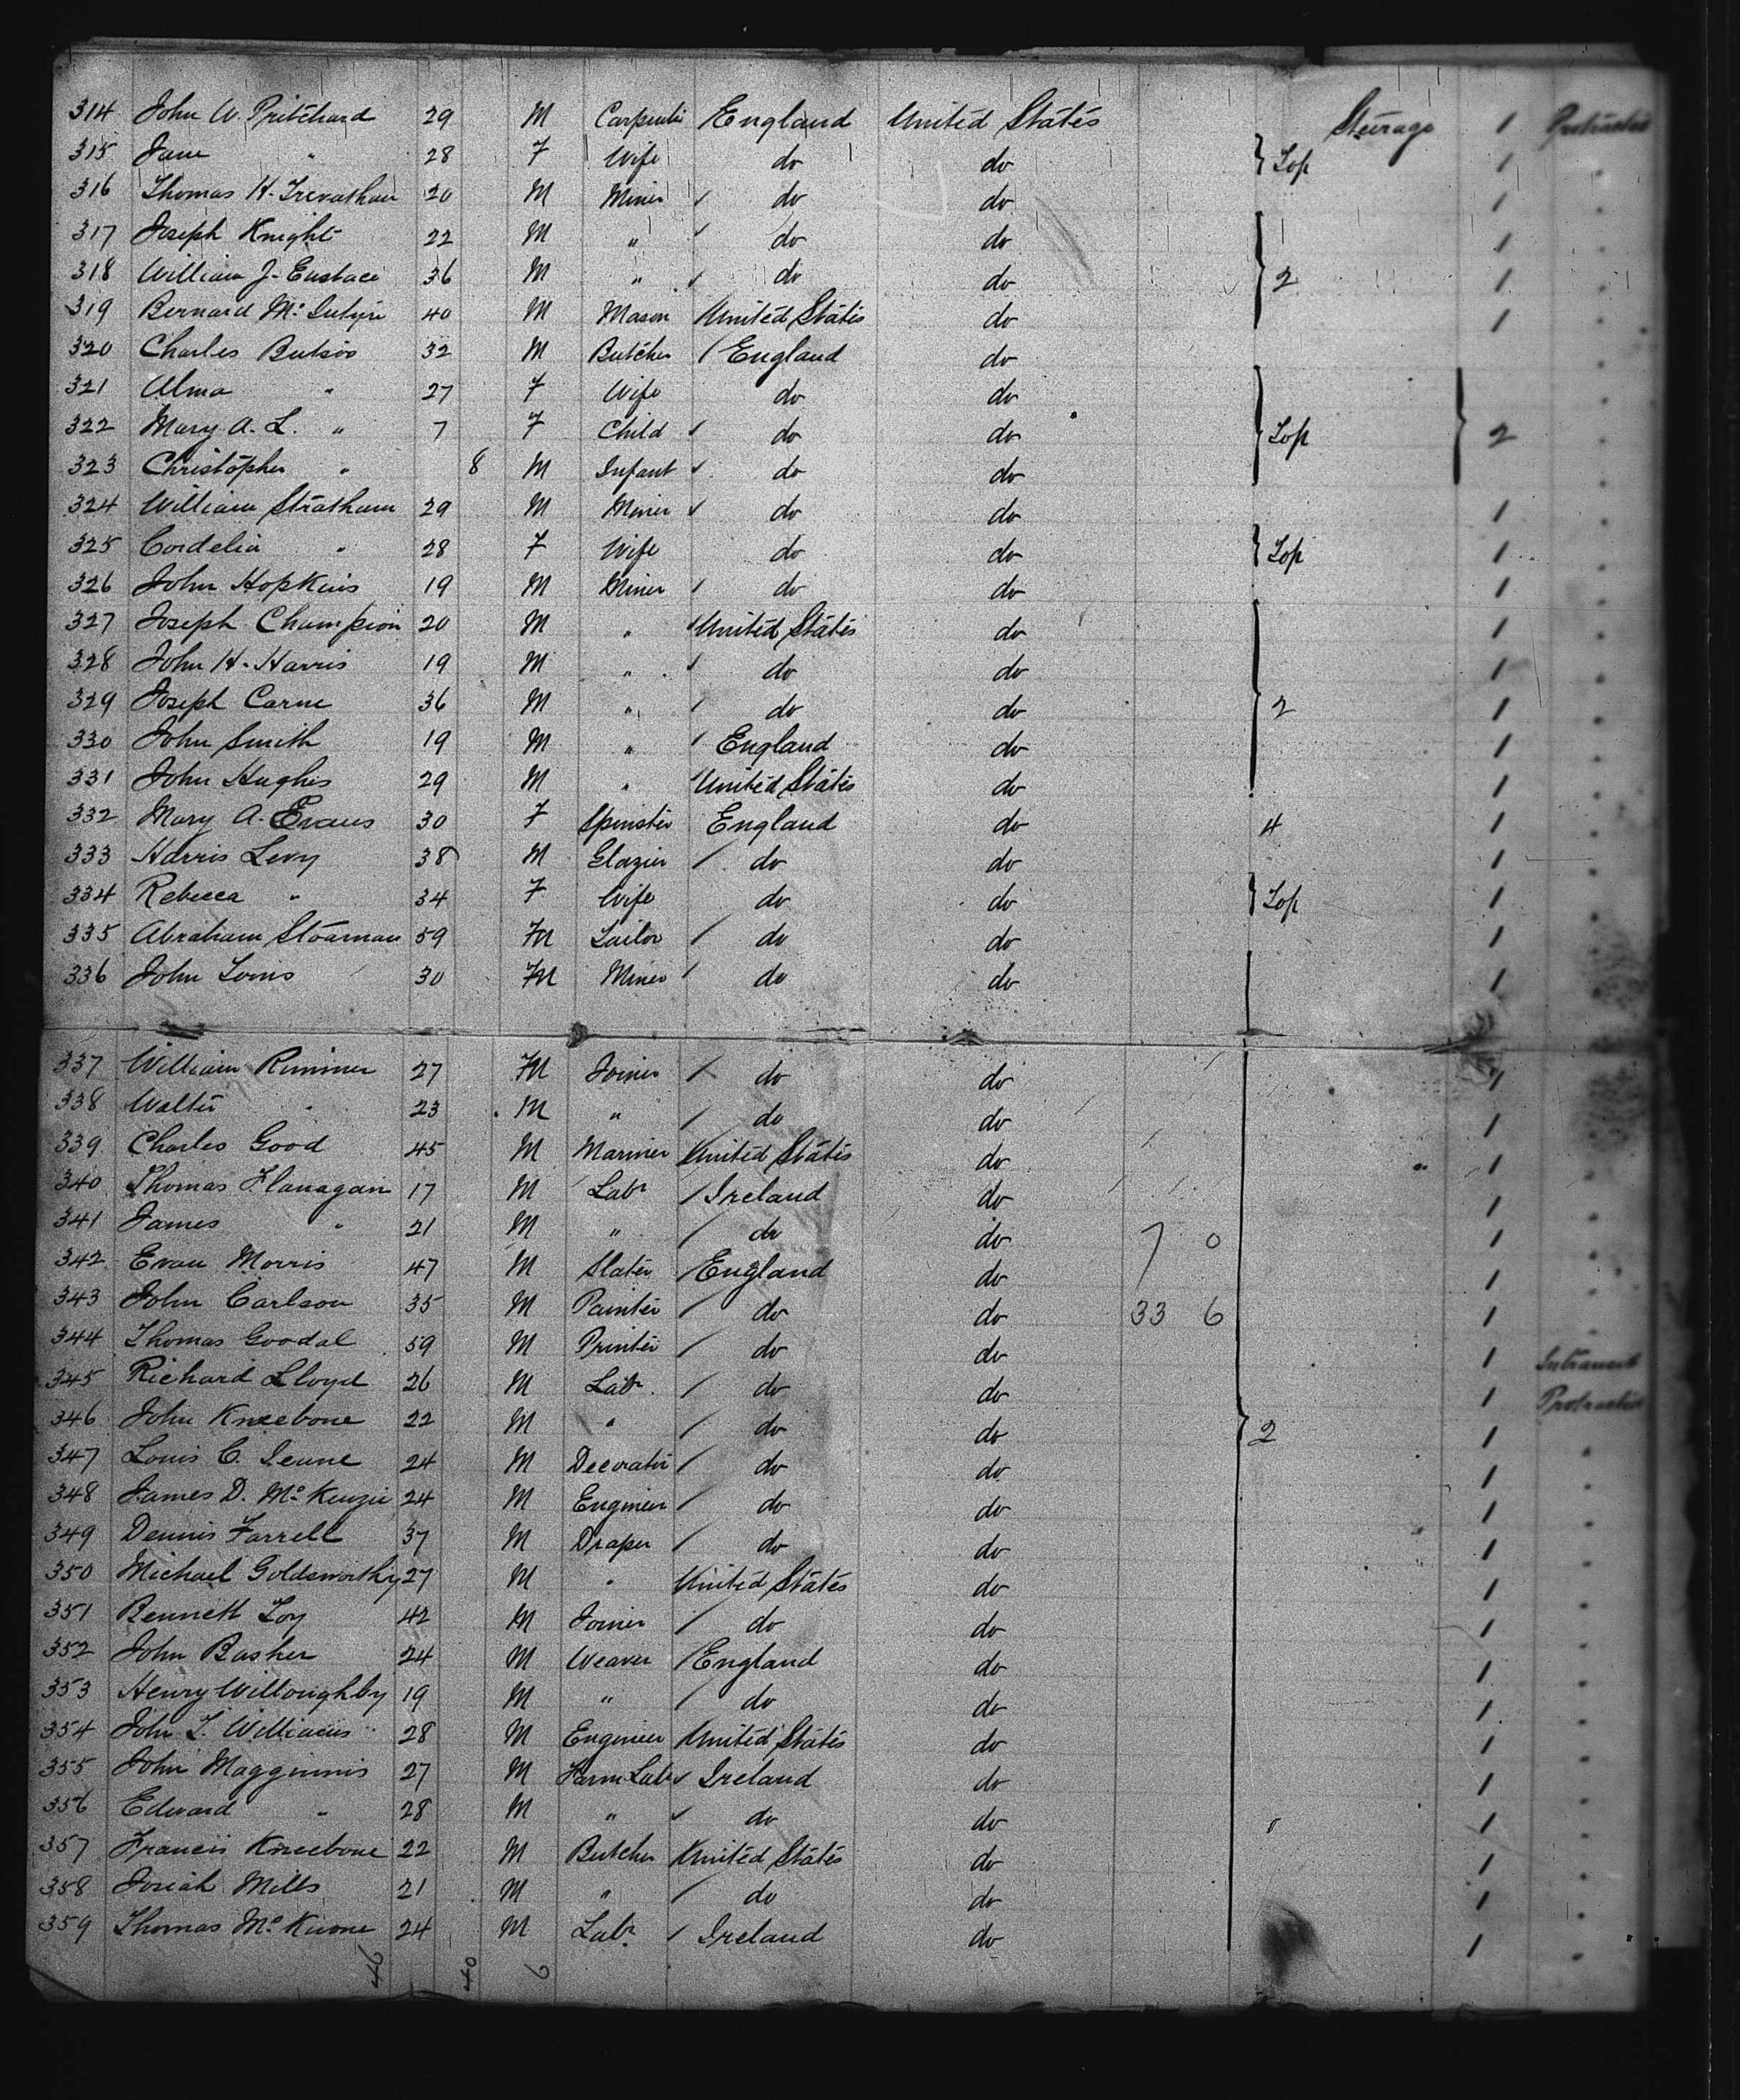 314 John W. Pritchard 29 M Carpenter England United States Steerage 1 Protracted
315 Jane " 28 F Wife do do } Top 1
316 Thomas H. Trevathan 20 M Miner / do do 1
317 Joseph Knight 22 M " / do do 1
318 William J. Eustace 36 M " / do do } 2 1
319 Bernard Mc. Intyre 40 M Mason United States do 1
320 Charles 32 M Butcher / England do
321 Alma " 27 F Wife do do
322 Mary A. L. " 7 F Child / do do } Top } 2
323 Christopher " 8 M Infant / do do
324 William Stratham 29 M Miner / do do 1
325 Cordelia " 28 F Wife do do } Top 1
326 John Hopkins 19 M Miner / do do 1
327 Joseph Champion 20 M " / United States do 1
328 John H. Harris 19 M " / do do 1
329 Joseph Carne 36 M " / do do } 2 1
330 John Smith 19 M " / England do 1
331 John Hughes 29 M " United States do 1
332 Mary A. Evans 30 F Spinster England do 4 1
333 Harris Levy 38 M Glazier / do do 1
334 Rebecca " 34 F Wife do do } Top 1
335 Abraham Stoarman 59 M Tailor / do do 1
336 John Louis 30 M Miner / do do 1
337 William Rimmer 27 M Joiner / do do 1
338 Walter " 23 M " / do do 1
339 Charles Good 45 M Mariner United States do 1
340 Thomas Flanagan 17 M Labr / Ireland do 1
341 James " 21 M " / do do 7 0 1
342 Evan Morris 47 M Slater / England do 1
343 John Carlson 35 M Painter / do do 33 6 1
344 Thomas Goodal 59 M Printer / do do 1 Intransit
345 Richard Lloyd 26 M Labr / do do 1 Protracted
346 John Kneebone 22 M " / do do } 2 1
347 Louis C. 24 M Decorator / do do 1
348 James D. Mc. Kenzie 24 M Engineer / do do 1
349 Dennis Farrell 37 M Draper / do do 1
350 Michael Goldsworthy 27 M " United States do 1
351 Bennett Toy 42 M Joiner / do do 1
352 John Basher 24 M Weaver / England do 1
353 Henry Willoughby 19 M " / do do 1
354 John T. Williams 28 M Engineer United States do 1
355 John Magginnis 27 M Farm Labr / Ireland do 1
356 Edward " 28 M " / do do " 1
357 Francis Kneebone 22 M Butcher United States do 1
358 Josiah Mills 21 M " / do do 1
359 Thomas Mc. 24 M Labr / Ireland do 1
46 40 6